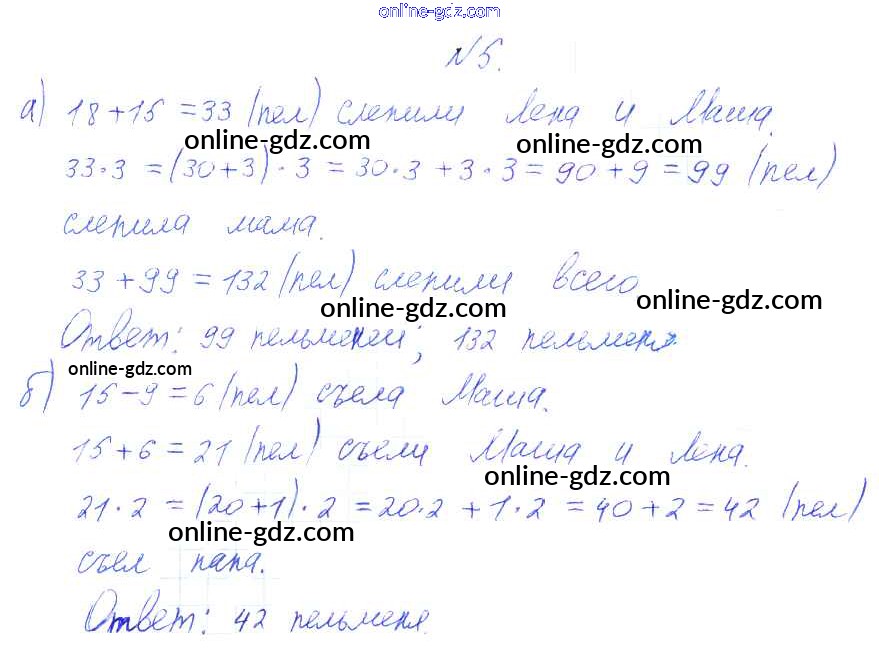 online-gdz.com
№5.
а) 18+15=33 (пел) слепили Лена и Маша.
online-gdz.com online-gdz.com
33·3 = (30+3)·3 = 30·3 + 3·3 = 90+9 = 99 (пел)
слепила мама.
33+99=132 (пел) слепили всего
online-gdz.com online-gdz.com
Ответ: 99 пельменей; 132 пельменя.
online-gdz.com
б) 15-9=6 (пел) съела Маша.
15+6=21 (пел) съели Маша и Лена.
online-gdz.com
21·2 = (20+1)·2 = 20·2 + 1·2 = 40+2 = 42 (пел)
online-gdz.com
съел папа.
Ответ: 42 пельменя.